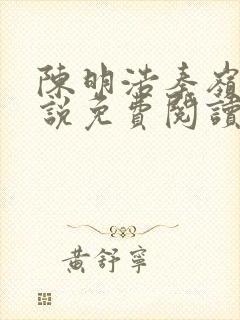 陳明浩秦嶺
說免費閱讀
黃舒寧